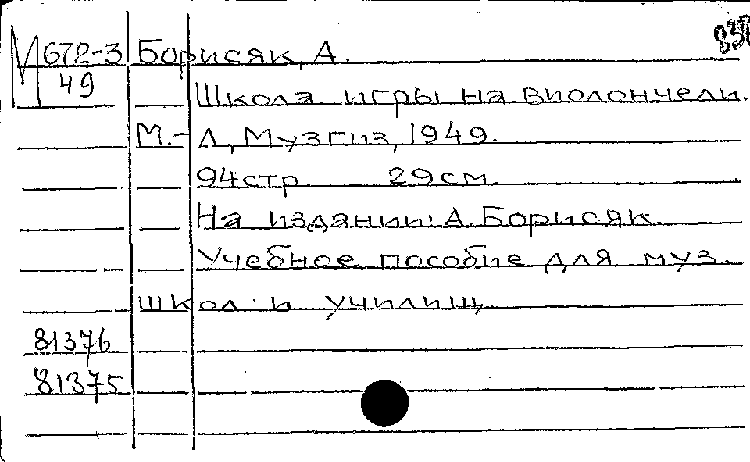 М 672-3 Борисяк, А.
49
Школа игры на виолончели.
М.-Л, Музгиз, 1949.
94стр 29см.
На издании: А. Борисяк.
Учебное пособие для муз.
школ и училищ
81376
81375